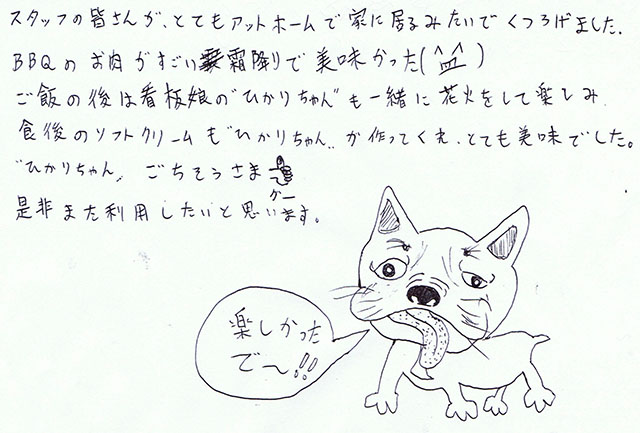 スタッフの皆さんが、とてもアットホームで家に居るみたいでくつろげました。
BBQのお肉がすごい霜降りで美味かった(^皿^)
ご飯の後は看板娘の"ひかりちゃん"も一緒に花火をして楽しみ
食後のソフトクリームも"ひかりちゃん"が作ってくれ、とても美味でした。
"ひかりちゃん"ごちそうさま
グー
是非また利用したいと思います。
楽しかった
で〜!!